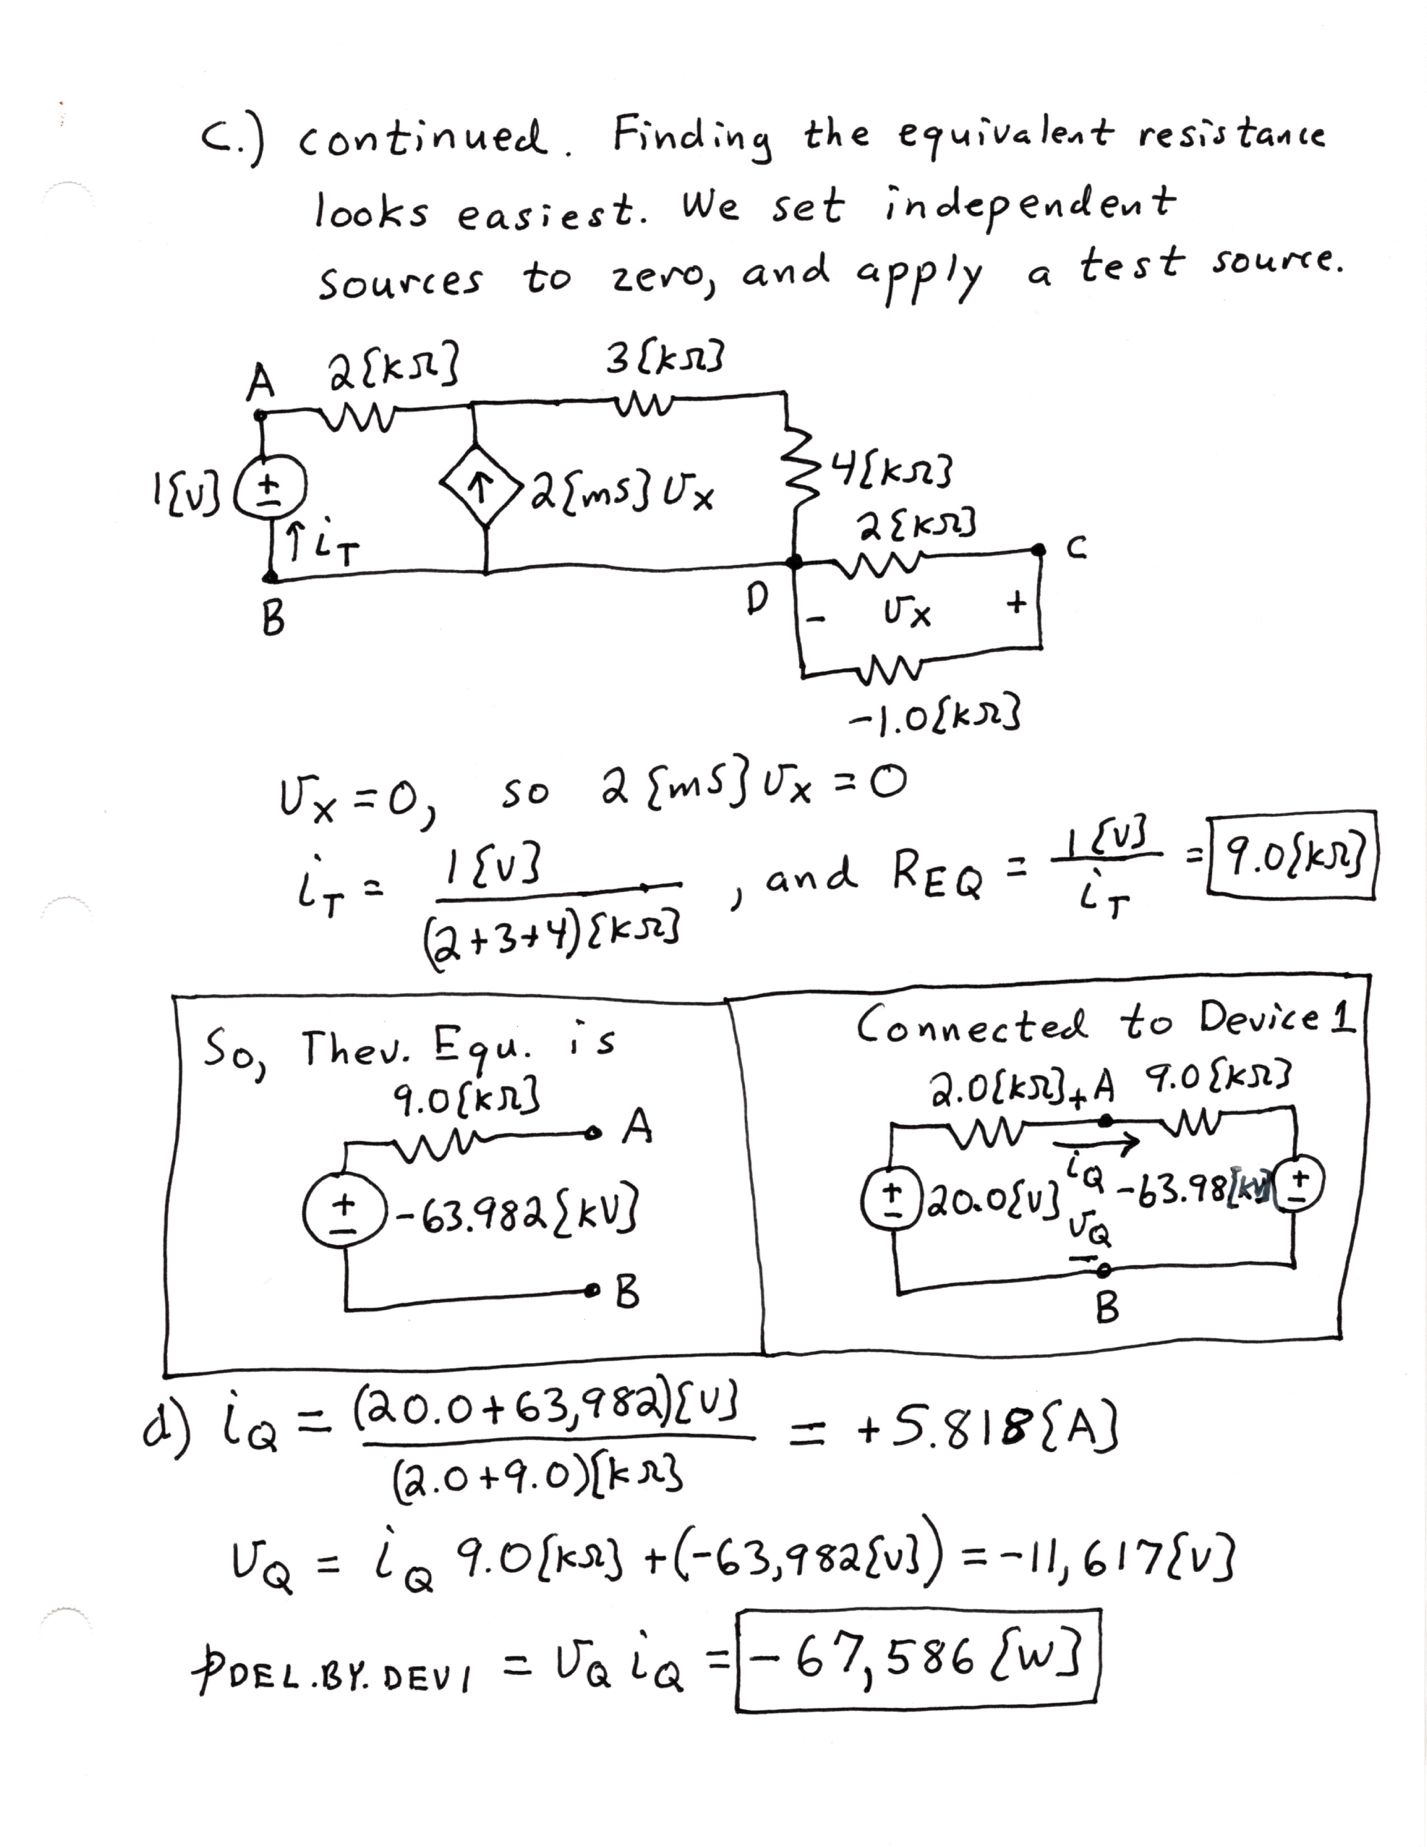 C.) continued. Finding the equivalent resistance
looks easiest. We set independent
sources to zero, and apply a test source.
A 2{kΩ} 3{kΩ}
1{V} + − ↑ iT ↑ 2{mS} vx 4{kΩ}
2{kΩ} C
B D − vx +
−1.0{kΩ}
vx = 0, so 2{mS} vx = 0
iT = 1{V} / (2+3+4){kΩ} , and REQ = 1{V} / iT = 9.0{kΩ}
So, Thev. Equ. is
9.0{kΩ} A
+ − −63.982{kV}
B
Connected to Device 1
2.0{kΩ} + A 9.0{kΩ}
+ − 20.0{V} iQ −63.98{kV} + −
vQ
−
B
d) iQ = (20.0+63,982){V} / (2.0+9.0){kΩ} = +5.818{A}
vQ = iQ 9.0{kΩ} + (−63,982{V}) = −11,617{V}
pDEL.BY.DEV1 = vQ iQ = −67,586{W}